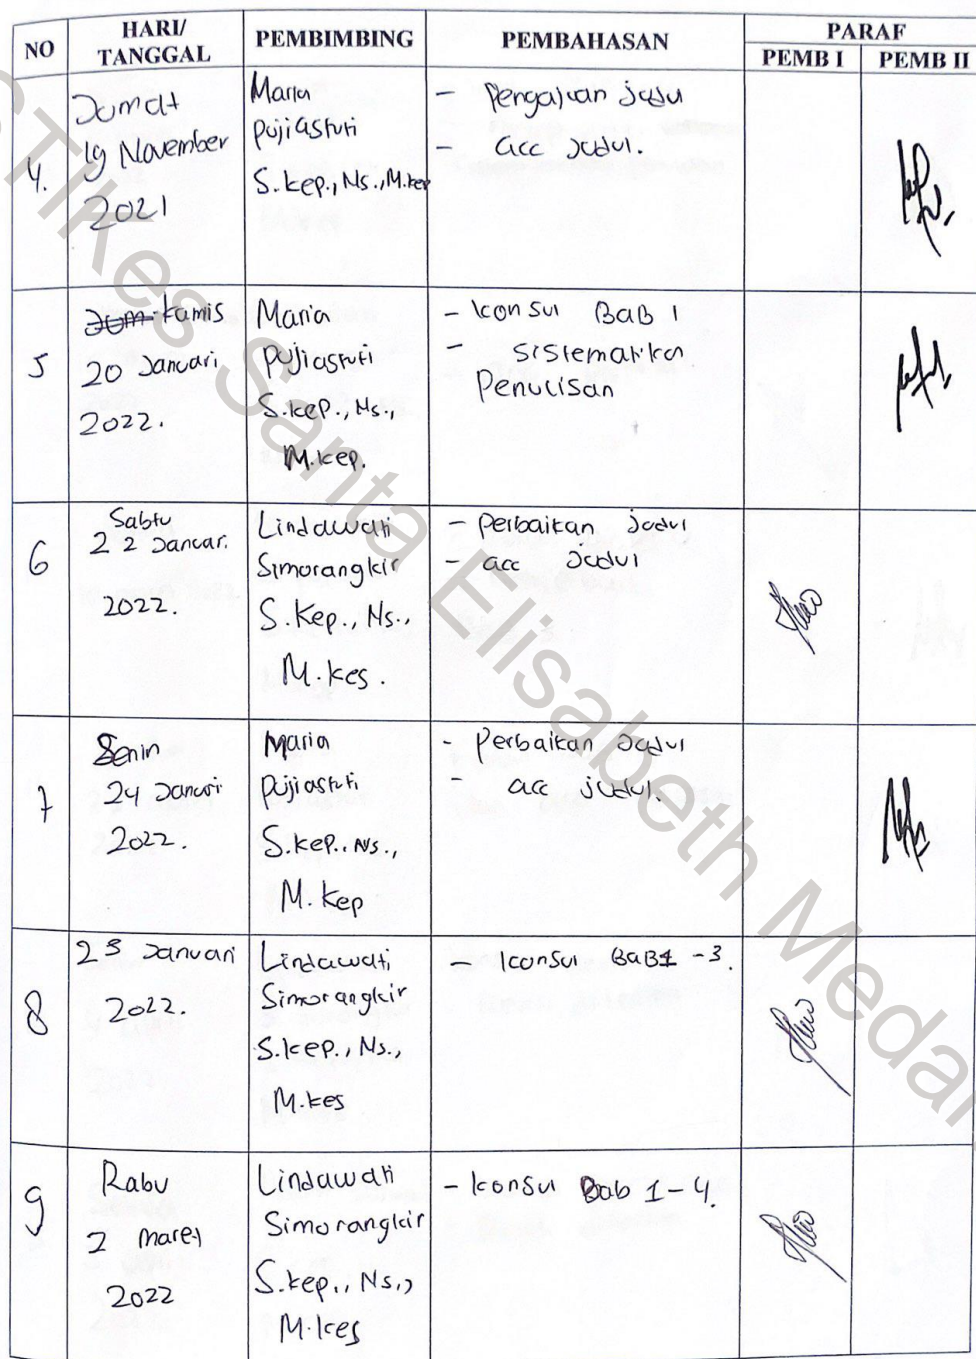 NO HARI/ TANGGAL PEMBIMBING PEMBAHASAN PARAF
PEMB I PEMB II
4. Jumat
19 November
2021
Maria
Pujiastuti
S.kep., Ns., M.kep
- Pengajuan
- acc Judul.
5 Kamis
20 Januari
2022.
Maria
Pujiastuti
S.kep., Ns.,
M.kep.
- Konsul BAB 1
- Sistematika
Penulisan
6 Sabtu
22 Januari
2022.
Lindawati
Simorangkir
S.Kep., Ns.,
M.kes.
- Perbaikan Judul
- acc Judul
7 Senin
24 Januari
2022.
Maria
Pujiastuti
S.kep., Ns.,
M.Kep
- Perbaikan Judul
- acc Judul.
8 Januari
2022.
Lindawati
Simorangkir
S.kep., Ns.,
M.kes
- Konsul BAB1 -3.
9 Rabu
2 maret
2022
Lindawati
Simorangkir
S.kep., Ns.,
M.kes
- Konsul Bab 1-4.
STIKes Santa Elisabeth Medan